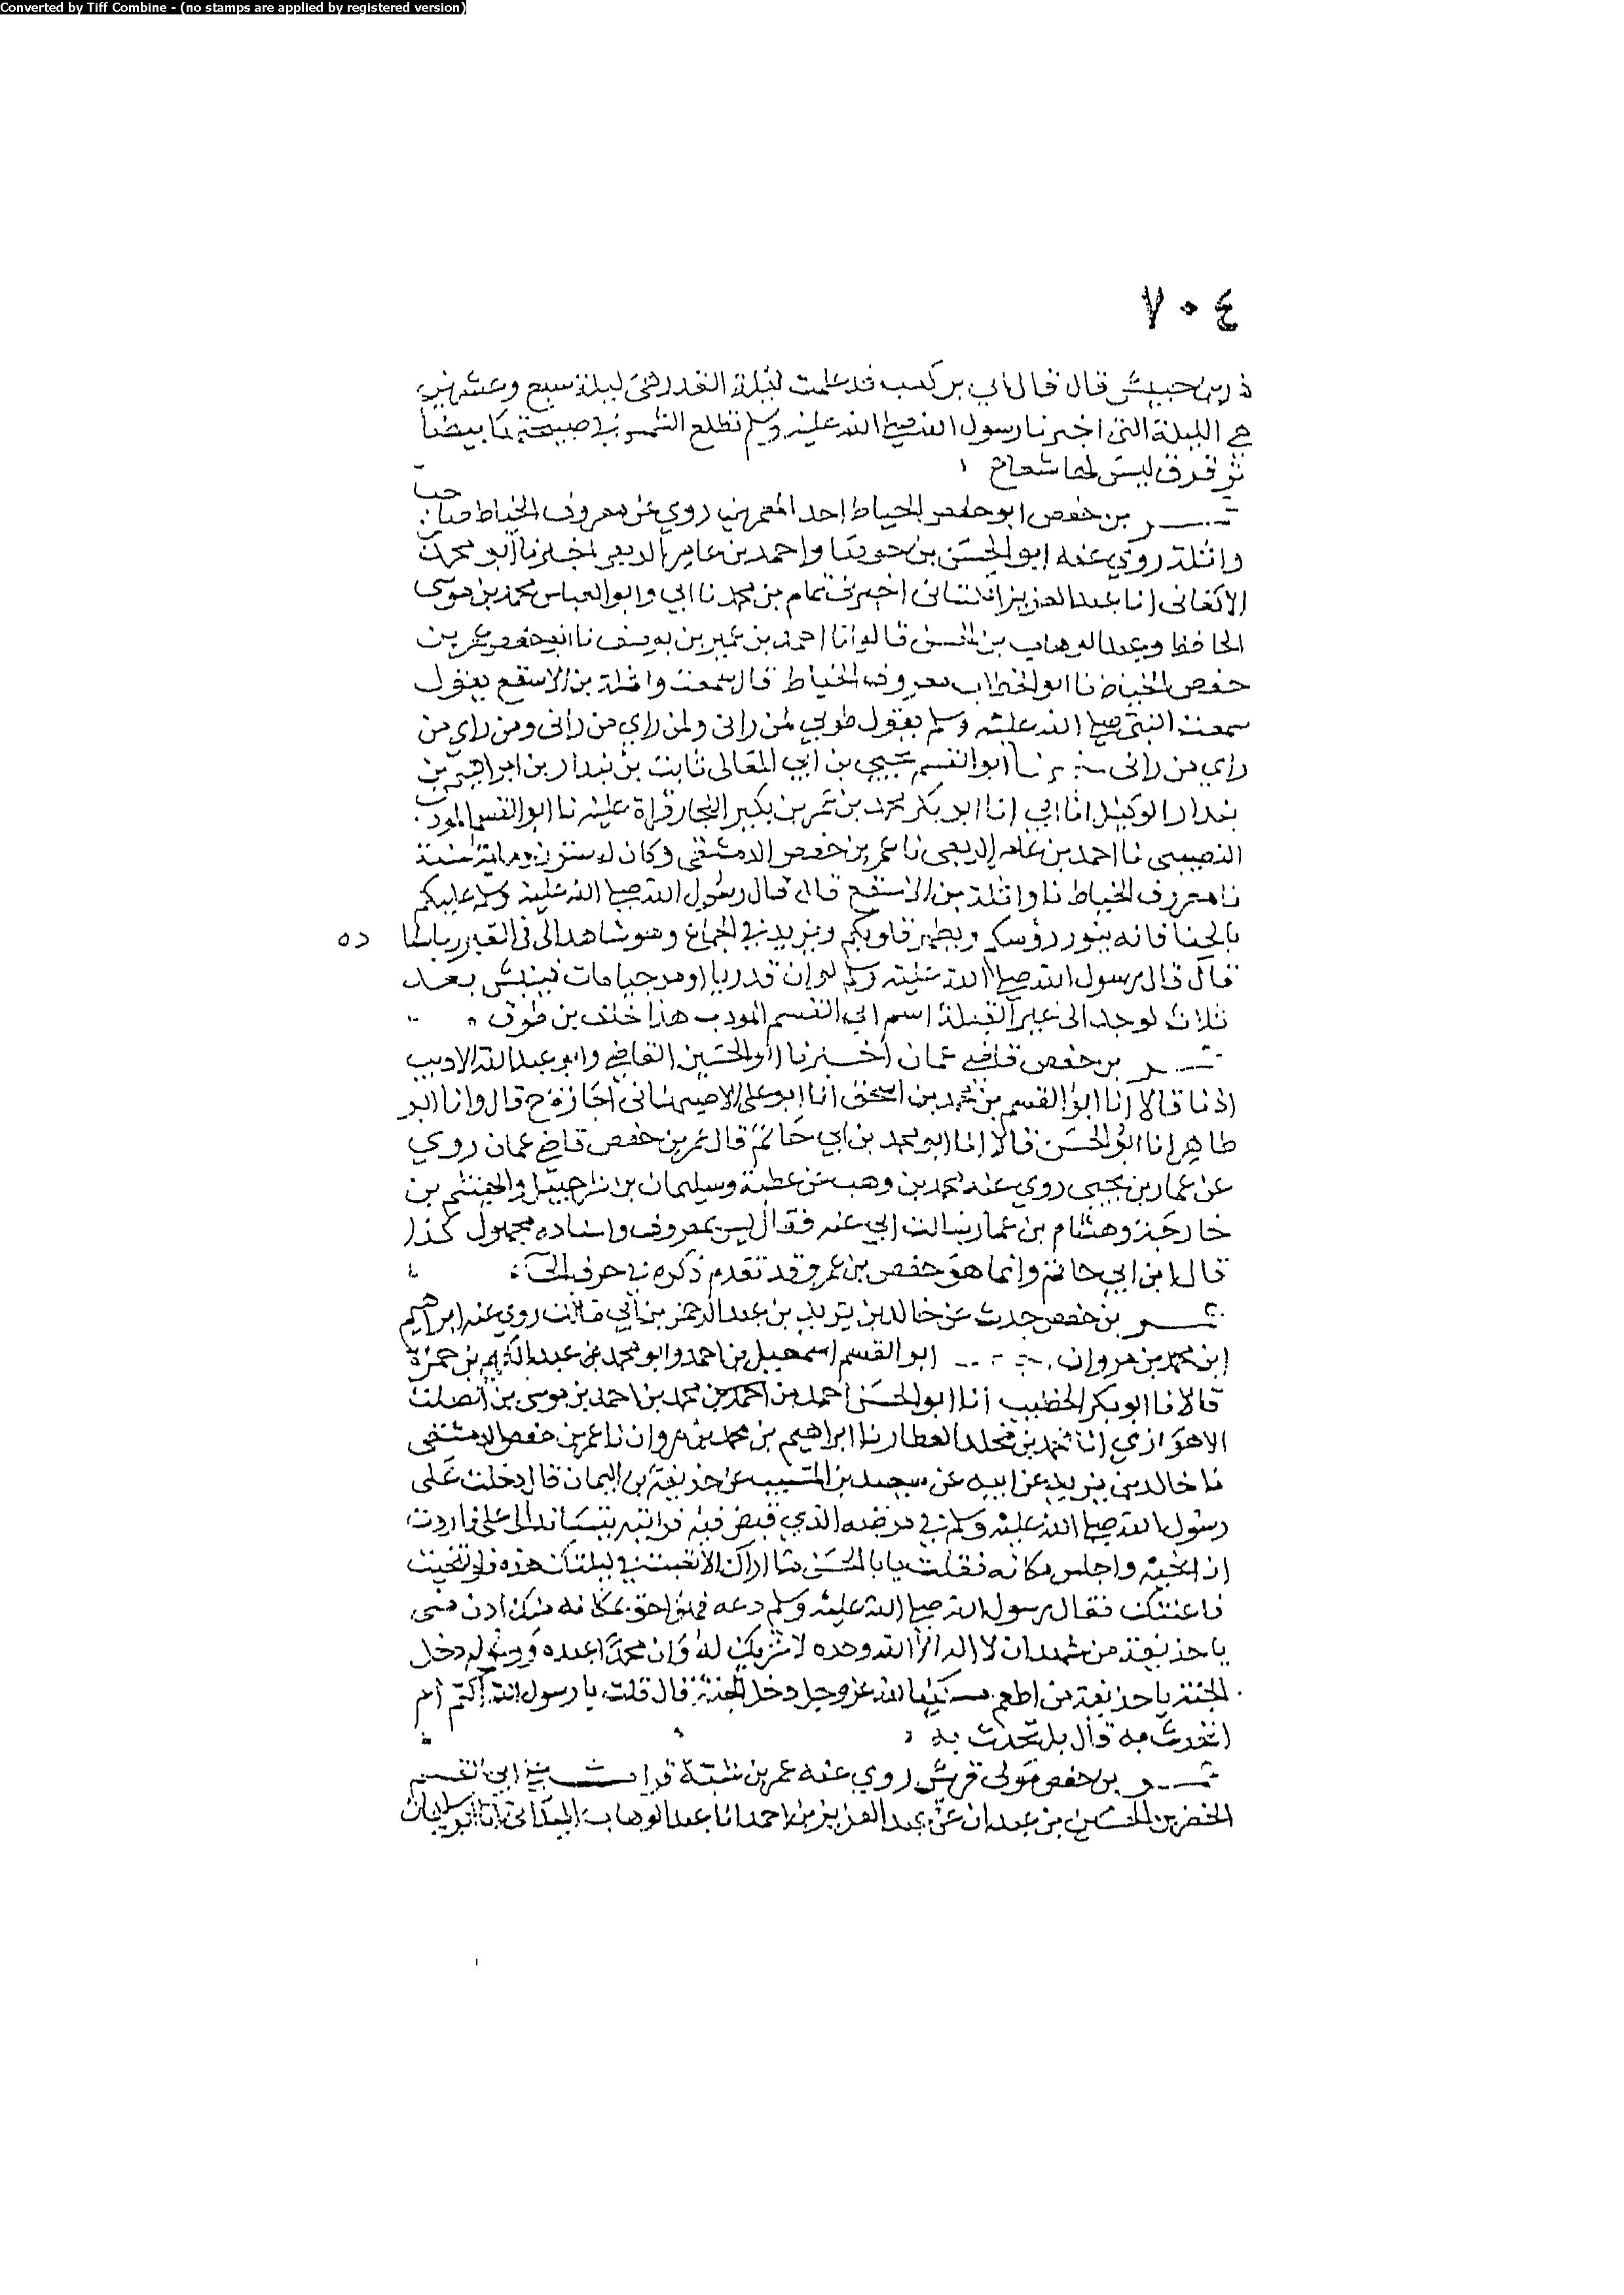 Converted by Tiff Combine - (no stamps are applied by registered version)
٧٠٤
زر بن حبيش قال قال ابي بن كعب قد علمت ليلة القدر هي ليلة سبع وعشرين
هي الليلة التي اخبرنا رسول الله صلى الله عليه وسلم تطلع الشمس في صبيحتها بيضا
ترقرق ليس لها شعاع
بن حفص ابو حفص الخياط احد المعمرين روي عن معروف الخياط صاحب
واثلة روي عنه ابو الحسن بن جوصا واحمد بن عامر الربعي اخبرنا ابو محمد بن
الاكفاني انا عبد العزيز الكتاني اخبرني تمام بن محمد نا ابي وابو العباس محمد بن موسى
الحافظ وعبد الوهاب بن الحسن قالوا نا احمد بن عمير بن يوسف نا ابو حفص عمر بن
حفص الخياط نا ابو الخطاب معروف الخياط قال سمعت واثلة بن الاسقع يقول
سمعت النبي صلى الله عليه وسلم يقول طوبي لمن راني ولمن راي من راني ومن راي من
راي من راني نا ابو القسم يحيي بن ابي المعالى ثابت بن بندار بن ابراهيم بن
بندار الوكيل انا ابي انا ابو بكر محمد بن عمر بن بكير النجار قراة عليه نا ابو القسم المودب
النصيبى نا احمد بن عامر الربعى نا عمر بن حفص الدمشقي وكان له ستون ومائة سنة
نا معروف الخياط نا واثلة بن الاسقع قال قال رسول الله صلى الله عليه وسلم عليكم
بالحنا فانه ينور رؤسكم ويطهر قلوبكم ويزيد في الجماع وهو شاهد لى في القبر
قال قال رسول الله صلى الله عليه وسلم لو ان قدريا او مرجيا مات فينبش بعد
ثلاث لوجد الى غير القبلة اسم ابي القسم المودب هذا خلف بن
بن حفص قاضي عمان اخبرنا ابو الحسين القاضي وابو عبد الله الاديب
اذنا قالا انا ابو القسم بن محمد بن اسحق انا ابو على الاصبهاني اجازة ح قال وانا ابو
طاهر انا ابو الحسن قالا انا ابو محمد بن ابي حاتم قال عمر بن حفص قاضي عمان روي
عن عمار بن يحيى روي عنه محمد بن وهب بن عطية وسليمان بن شرحبيل والهيثم بن
خارجة وهشام بن عمار سالت ابي عنه فقال ليس بمعروف واسناده مجهول كذا
قال ابن ابي حاتم وانما هو حفص بن عمر وقد تقدم ذكره في حرف الحآ
بن حفص حدث عن خالد بن يزيد بن عبد الرحمن بن ابي مالك روي عنه ابراهيم
ابن محمد بن مروان ابو القسم اسمعيل بن احمد وابو محمد بن عبد الكريم بن حمزة
قالا نا ابو بكر الخطيب انا ابو الحسن احمد بن محمد بن احمد بن موسى بن الصلت
الاهوازي انا محمد بن مخلد العطار نا ابراهيم بن محمد بن مروان نا عمر بن حفص الدمشقي
نا خالد بن يزيد عن ابيه عن سعيد بن المسيب عن حذيفة بن اليمان قال دخلت على
رسول الله صلى الله عليه وسلم في مرضه الذي قبض فيه فرايته يتساند الى على فاردت
ان انحيه واجلس مكانه فقلت يابا الحسن ما اراك الا تعبت في ليلتك هذه فلو تنحيت
فاعنتك فقال رسول الله صلى الله عليه وسلم دعه فهو احق بمكانه منك ادن مني
يا حذيفة من شهد ان لا اله الا الله وحده لا شريك له وان محمدا عبده ورسوله دخل
الجنة يا حذيفة من اطعم مسكينا لله عز وجل دخل الجنة قال قلت يا رسول الله اكتم ام
اتحدث به قال بل تحدث به
بن حفص مولى قريش روي عنه عمر بن شبة قرات ابي القسم
الخضر بن الحسين بن عبدان عن عبد العزيز بن احمد انا عبد الوهاب الميداني انا ابو سليمان